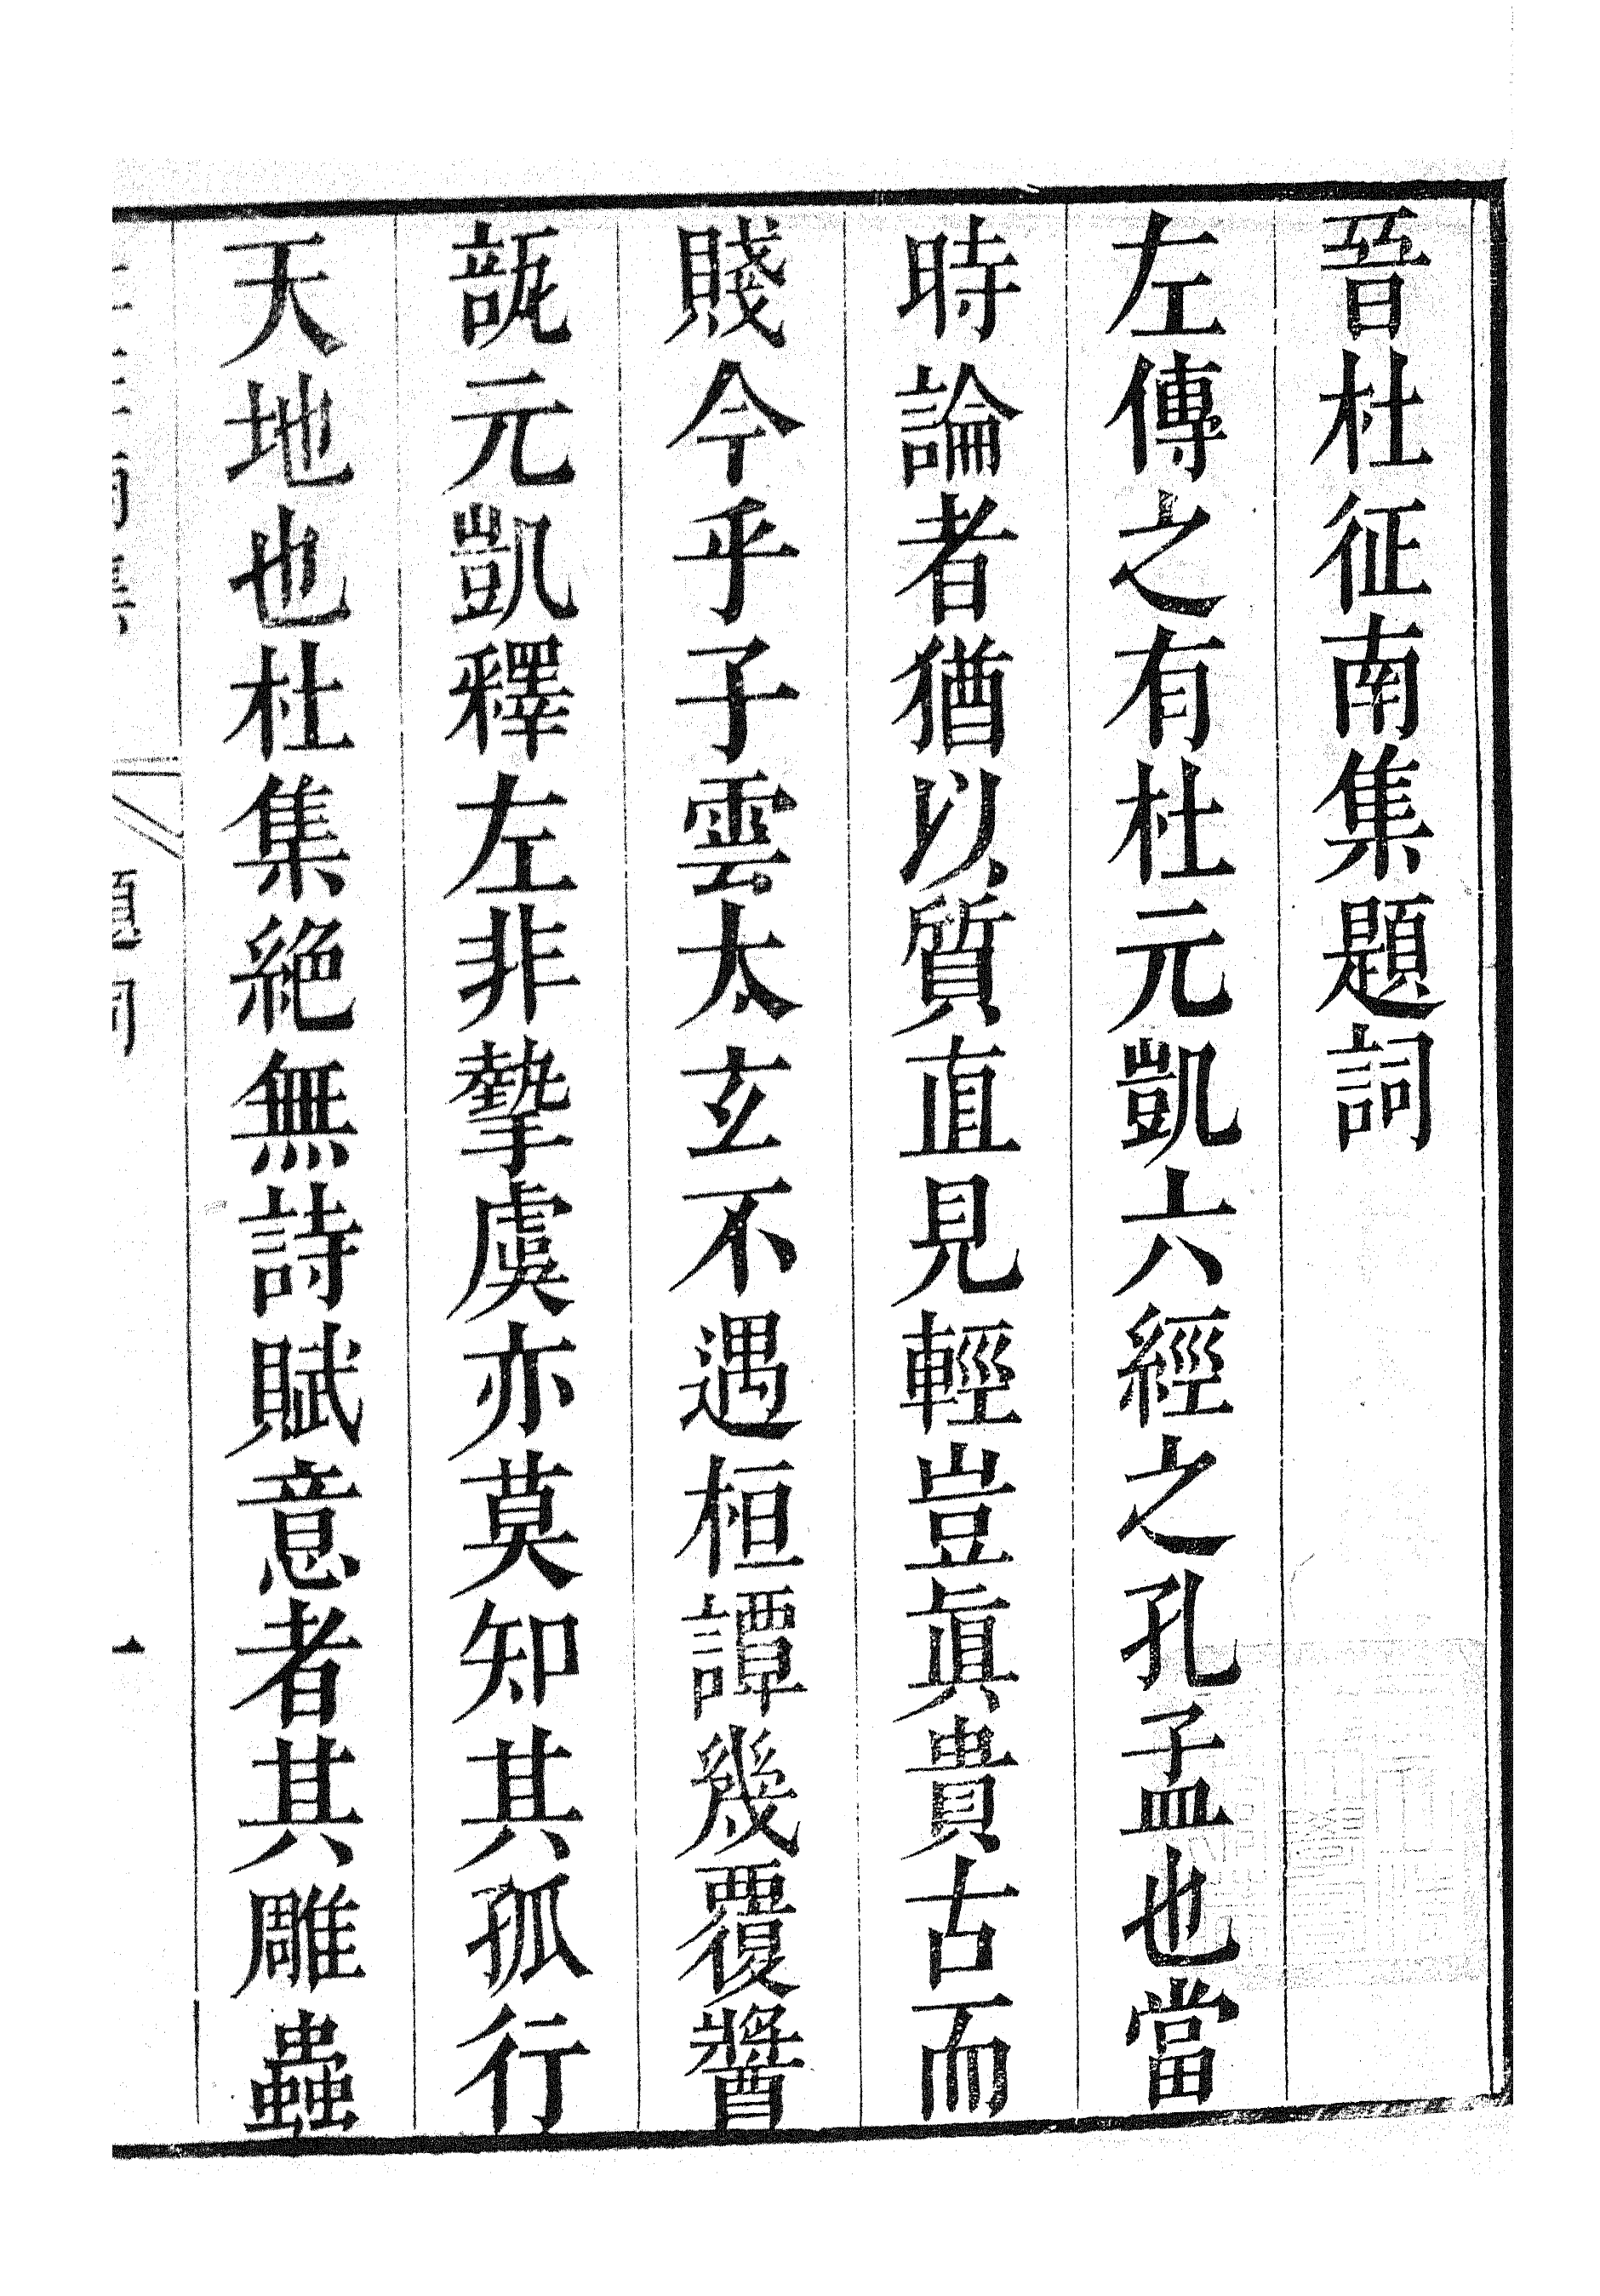 晉杜征南集題詞
左傳之有杜元凱六經之孔孟也當
時論者猶以質直見輕豈眞貴古而
賤今乎子雲太玄不遇桓譚幾覆醬
瓿元凱釋左非摯虞亦莫知其孤行
天地也杜集絕無詩賦意者其雕蟲
題詞 一